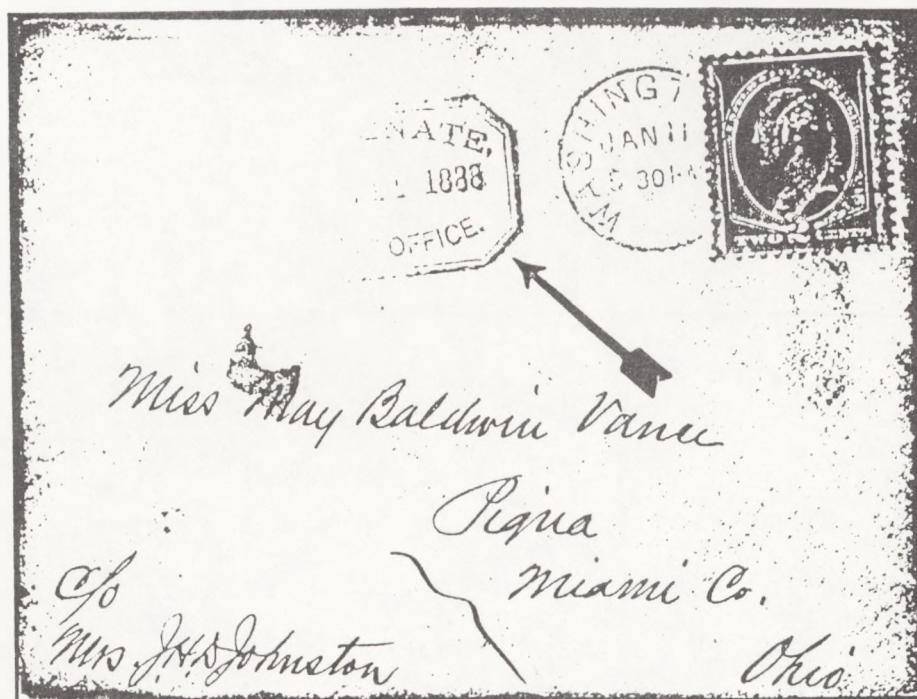 ENATE,
1888
OFFICE.
WASHINGT
JAN 11
5 30
TWO 2 CENTS
Miss May Baldwin Vance
Piqua
Miami Co.
Ohio
c/o
Mrs. J.H.D. Johnston